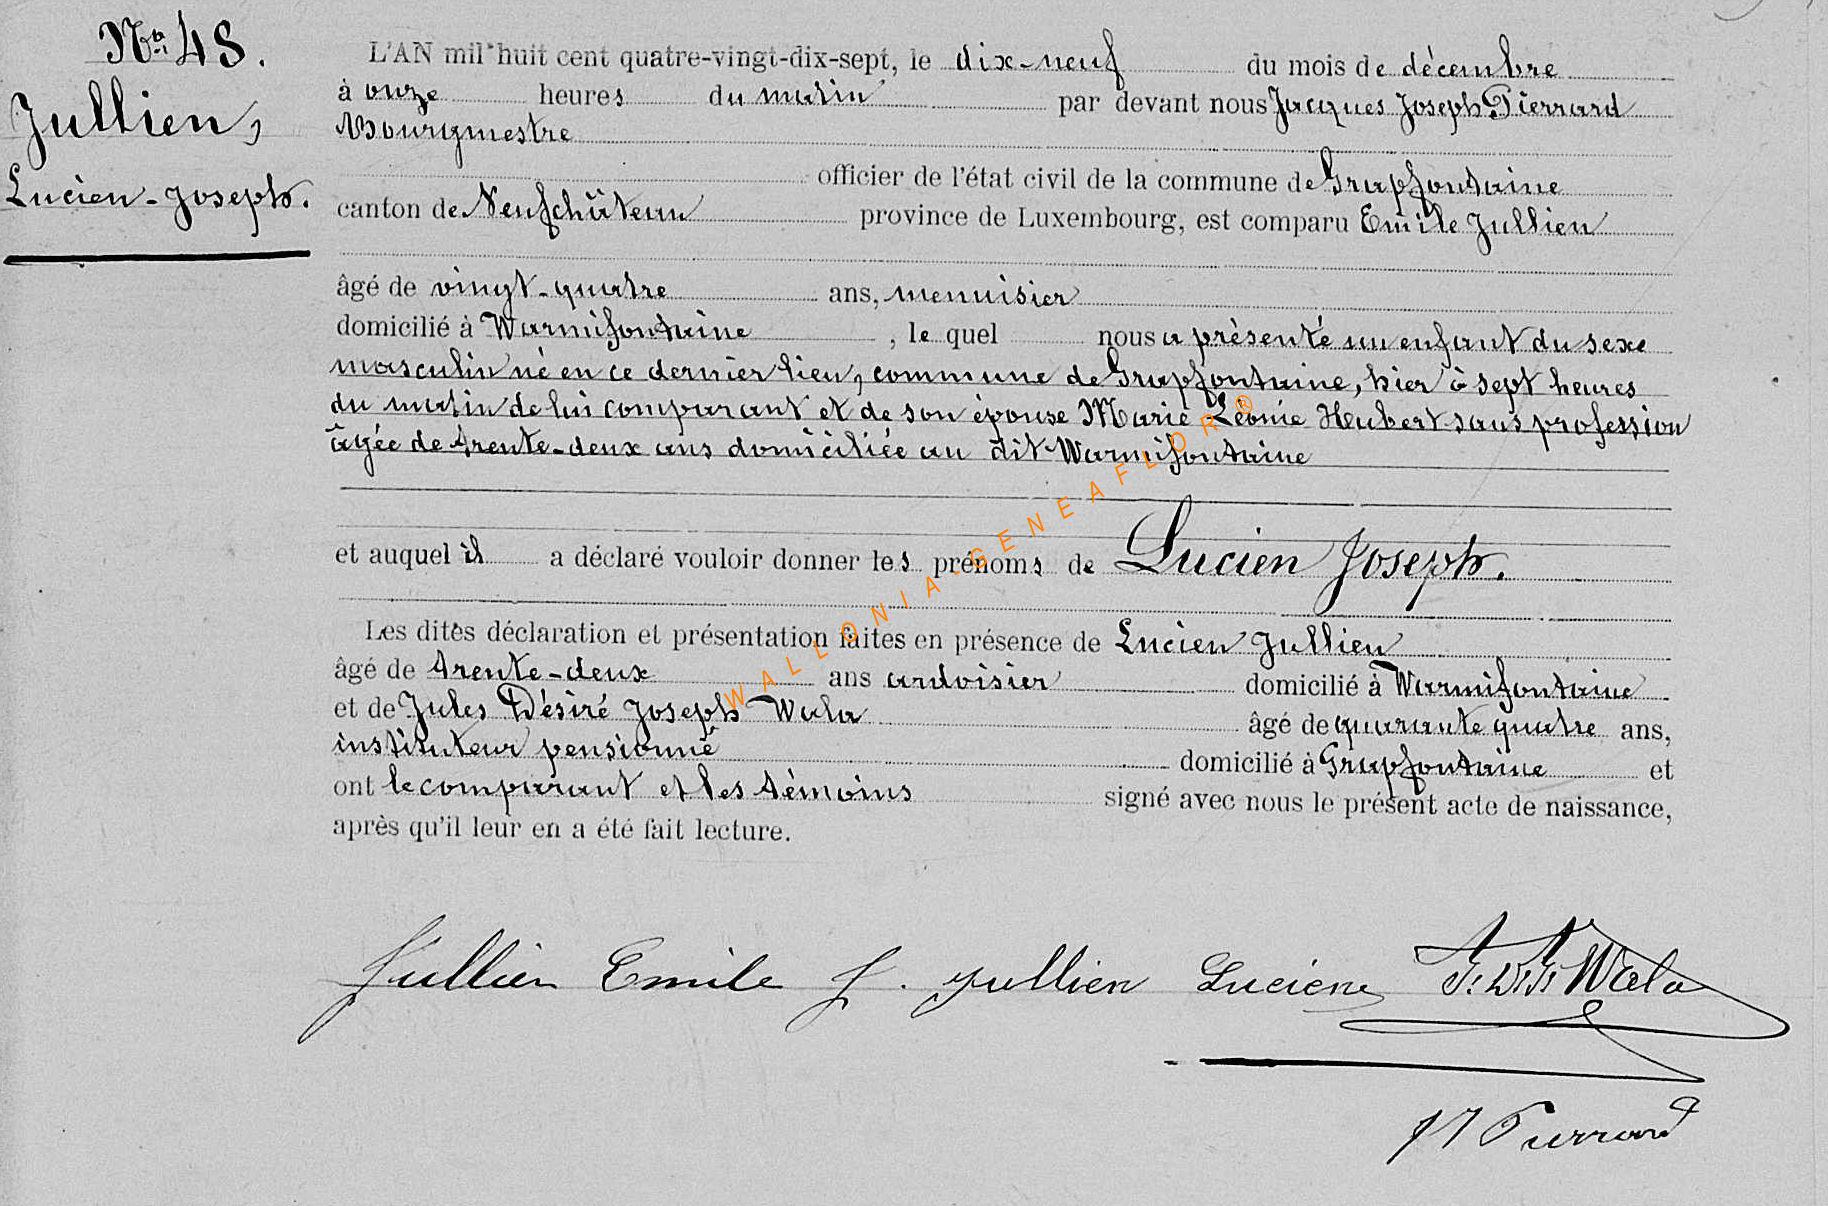 No 48.
Jullien,
Lucien-Joseph.
L'AN mil huit cent quatre-vingt-dix-sept, le dix-neuf du mois de décembre
à onze heures du matin par devant nous Jacques Joseph Pierrard
Bourgmestre
officier de l'état civil de la commune de Grapfontaine
canton de Neufchâteau province de Luxembourg, est comparu Emile Jullien
âgé de vingt-quatre ans, menuisier
domicilié à Warmifontaine, le quel nous a présenté un enfant du sexe
masculin né en ce dernier lieu, commune de Grapfontaine, hier à sept heures
du matin de lui comparant et de son épouse Marie Léonie Heubert sans profession
âgée de trente-deux ans domiciliée au dit Warmifontaine
et auquel il a déclaré vouloir donner les prénoms de Lucien Joseph.
Les dites déclaration et présentation faites en présence de Lucien Jullien
âgé de trente-deux ans ardoisier domicilié à Warmifontaine
et de Jules Désiré Joseph Wala âgé de quarante quatre ans,
instituteur pensionné domicilié à Grapfontaine et
ont le comparant et les témoins signé avec nous le présent acte de naissance,
après qu'il leur en a été fait lecture.
Jullien Emile J. Jullien Lucien J. D. J. Wala
JJ Pierrard
WALLONIA-GENEAFLOR®